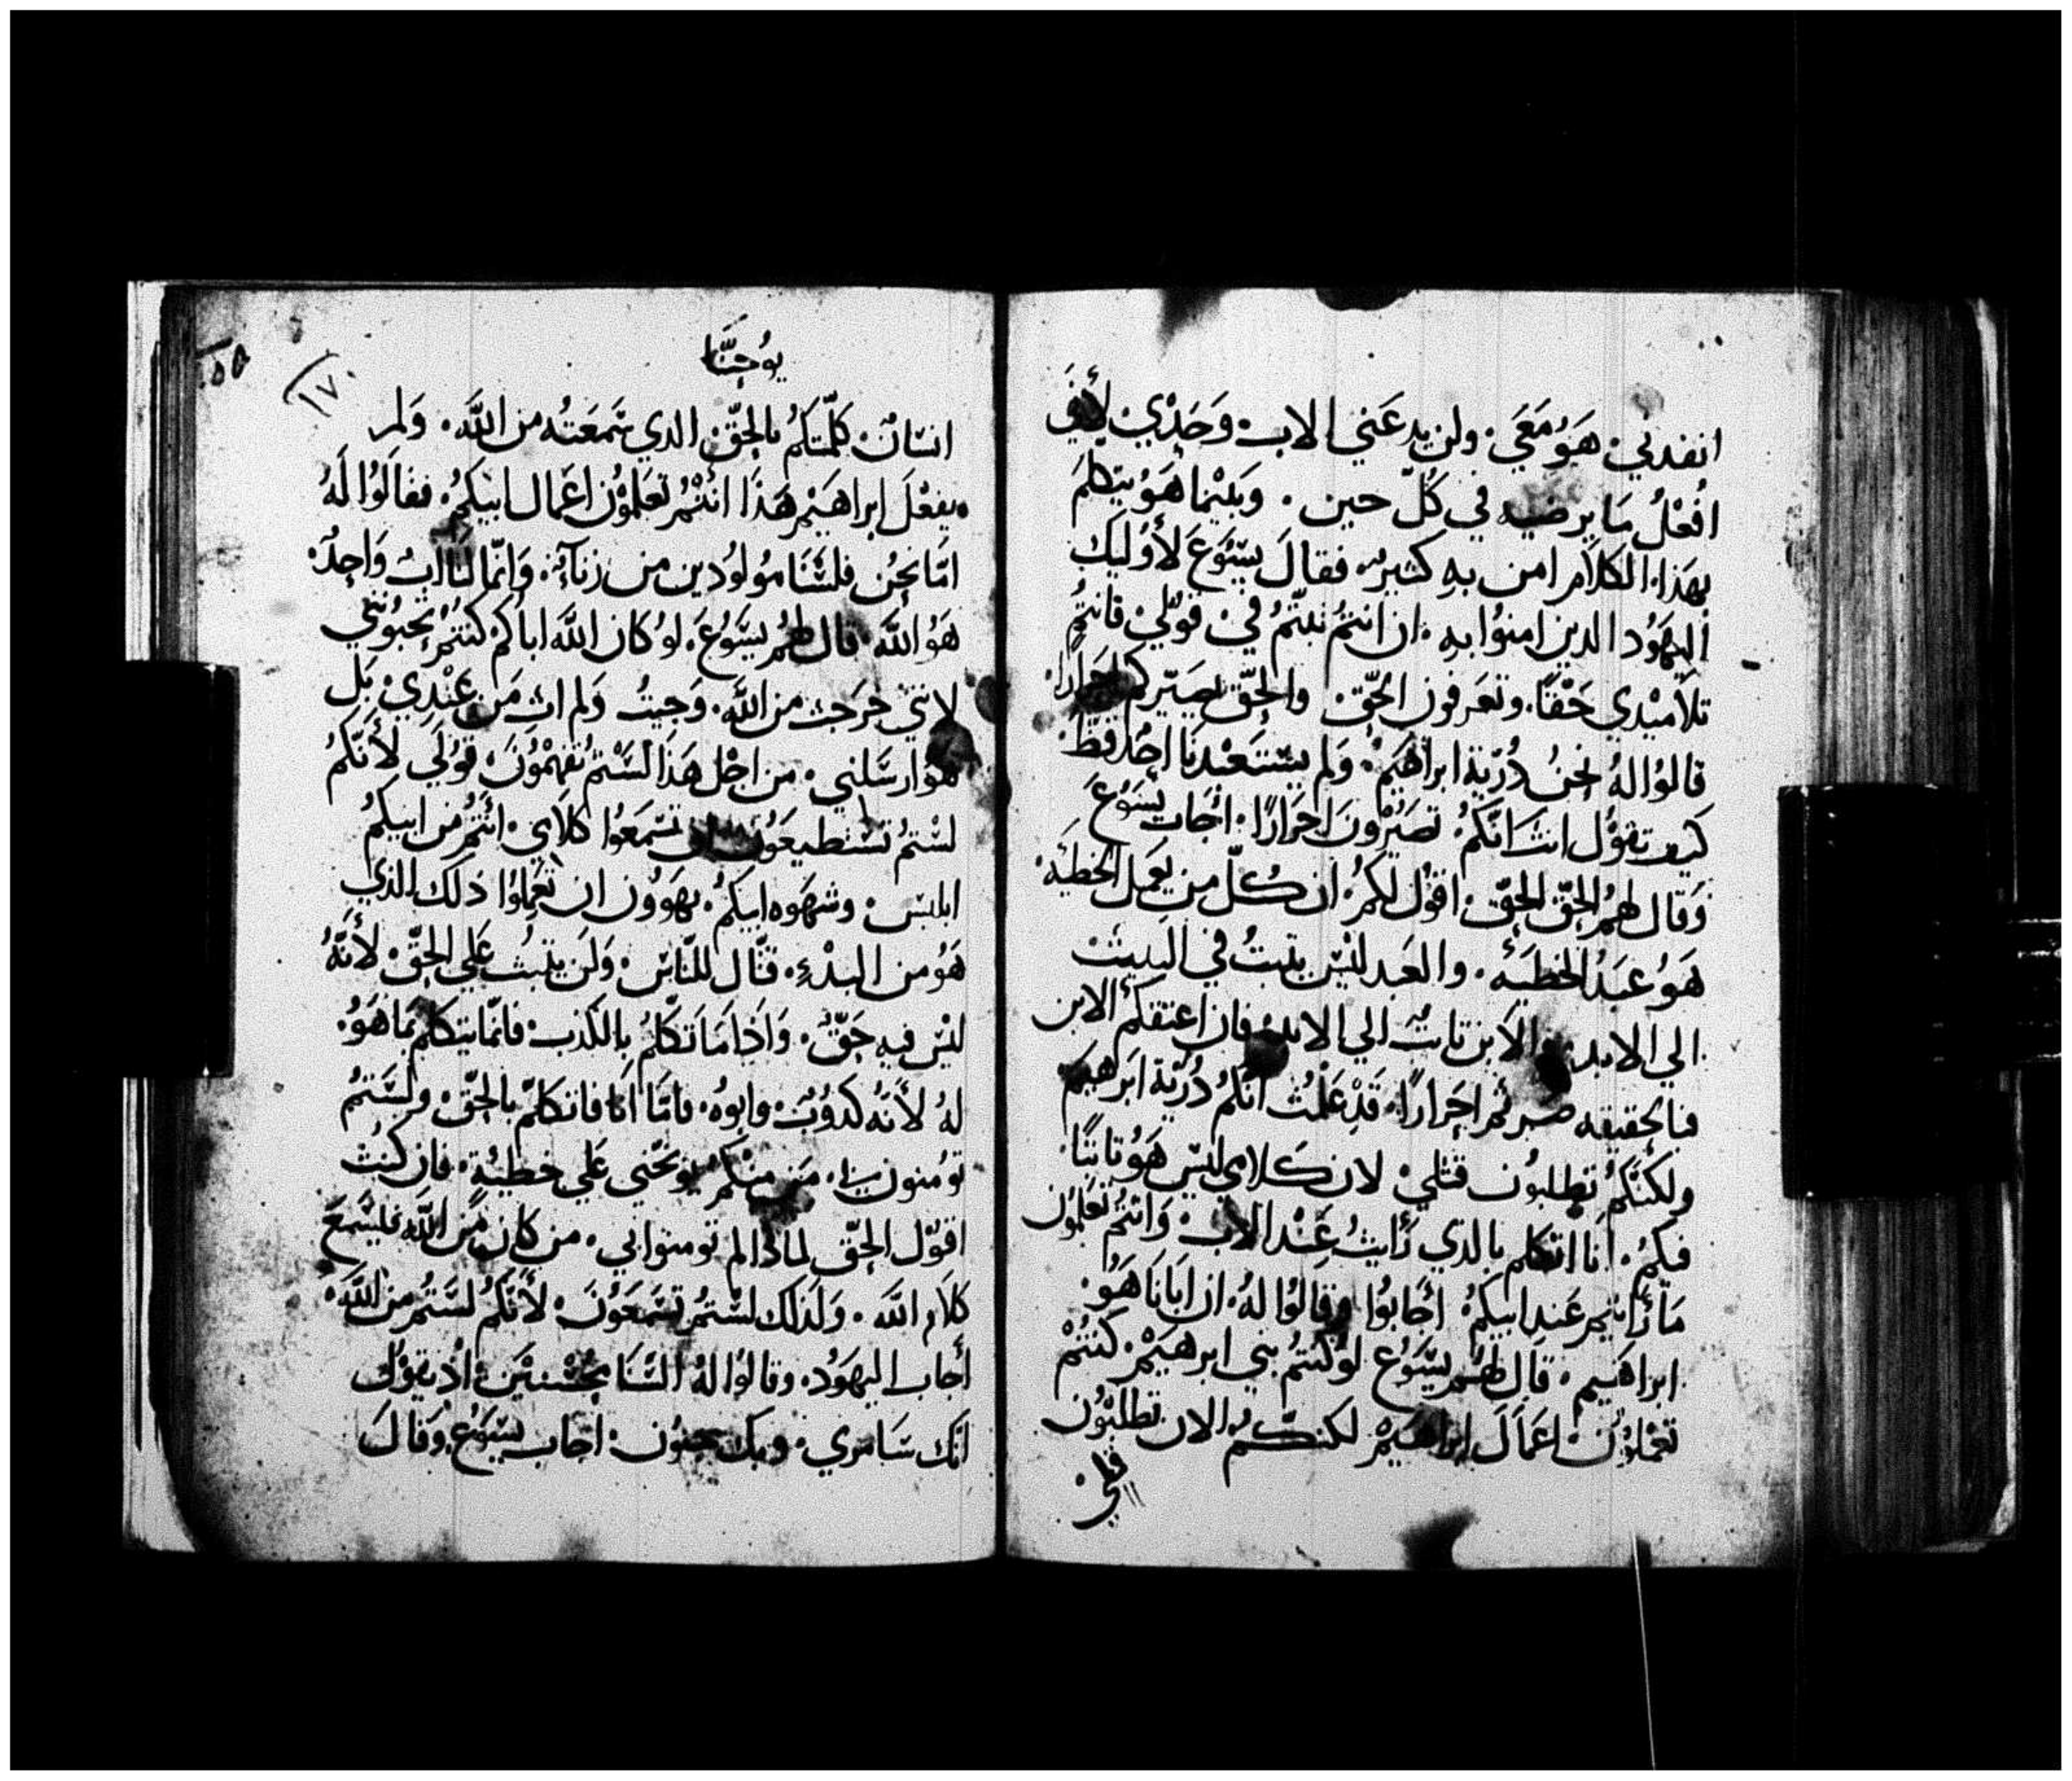 انفدني. هَوُ مَعَي. ولن يدعَني الاب. وَحَدْيْ لأَنِي
افُعْلُ مَا يرضيه في كُلّ حين. وَبيْنما هَوُ يتكلمَ
بهَذا. الكلاَم امن بهِ كثير. فقالَ يسَّوَعَ لأَوُليَك
اليهَوُد الدين امنوُا بهِ. ان انتمُ ثبتّمُ فيْ قوليْ فانتمُ
تلاَميْدي حَقاً. وتعَرفون الحَقّ والحَقّ يصَيّركم احرارا.
قالوُا لهُ نحنُ دُرّية ابراهَيمْ. وَلم يسَتعَبْدنَا احَدُ قطَ.
كيف تقوْل انتَ انكمُ تصَيرْونَ احَرَارًا. أجَاب يسَوُعَ
وَقال لهمُ الحَقّ الحَقّ. اقوُل لكمُ. ان كُلّ من يعَمل الخطيَه.
هَوُ عبَدُ الخطيَة. والعَبد ليْسَ يثبتُ في البيتْ
الي الابد. والاَبن ثابتُ الي الابد. فان اعتقكم الابن
فبالحقيقه صرتم احَرارًا. قَدْ عَلمْتُ انكمُ دُرّية ابَرهيَم
ولكنكمُ تطلبوُن قتليْ لان كلامي ليسَ هَوُ ثابتًا
فيكمُ. انا اتكلم بالدي رَأيتُ عِنْد الاب. وَانتمُ تعَملوُن
مَا رَأيتم عَند ابيكمُ. أجَابوُا وقالوُا لهُ. ان ابَانَا هَوُ.
ابراهَيم. قال لهم يسَّوُع لوُ كنتمُ بني ابرهيَمْ. كنتُمْ
تعَملوُن اعَمَالَ ابراهيَمْ لكنكّمُ الان تطلبوُن
قتلي.
يوُحنَّا
٥٥
١٧
انسَانٌ. كلّمتكمُ بالحَقّ الدي سَمعَتهُ من اللَّه. وَلم
يفعْلَ ابراهيَمْ هَذَا انتُمْ تعَملوُن اعَمال ابيَكمُ. فقالَوُا لَهُ
امّا نحنُ فلسَنَا موُلوُدين من زناءٍ. وَانمّا لنَا ابٌ وَاحِدُ.
هَوُ اللَّه. قال لهمُ يسَّوُعَ. لوُ كان اللَّه اباكمُ كنتمُ تحبوُنني
لانني خَرجَت من اللَّه. وَجَيتُ وَلم ات مَن عَنْدِي. بَل
هَوُ ارسَلني. من اجْل هَذَا لسْتمُ تفهَموُنَ قوُلي لأَنكمُ
لسْتمُ تسَتطيعَوُن ان تسَمعَوُا كلاَمي. انتمُ من ابيكمُ
ابليسَ. وشهَوَه ابيكمُ. يهَوُون ان تعَملوُا ذلك الذي
هَوُ من البدْءِ. قتّال للنّاسَ. وَلن يثبت عَلي الحَقّ لأَنّهُ
ليْسَ فيهِ حَقّ. وَاذَا مَا تكلّمُ بالكذب. فانمّا يتكلم بمَا هَوُ.
لهُ لأَنه كدوُبٌ. وابوُه. فامّا انَا فاتكلمّ بالحَقّ ولسَتمُ
توُمنون بي. مَن منكمْ يوُبخنّي عَلي خطيَة. فان كنتْ
اقوُل الحَقّ لماذا لم توُمنوا بي. من كان من اللَّه فليسَمعَ
كلاَم اللَّه. وَلدَلك لسْتمُ تسَمعَوُنَ لأَنكمُ لسَتمُ من اللَّه.
أجاب اليهَوُد. وقالوُا لهُ السَّنَا مُحْسْنيَن. اذْ نقوُل
انك سَامري. وَبك جنوُن. اجاب يسَوُع. وَقالَ